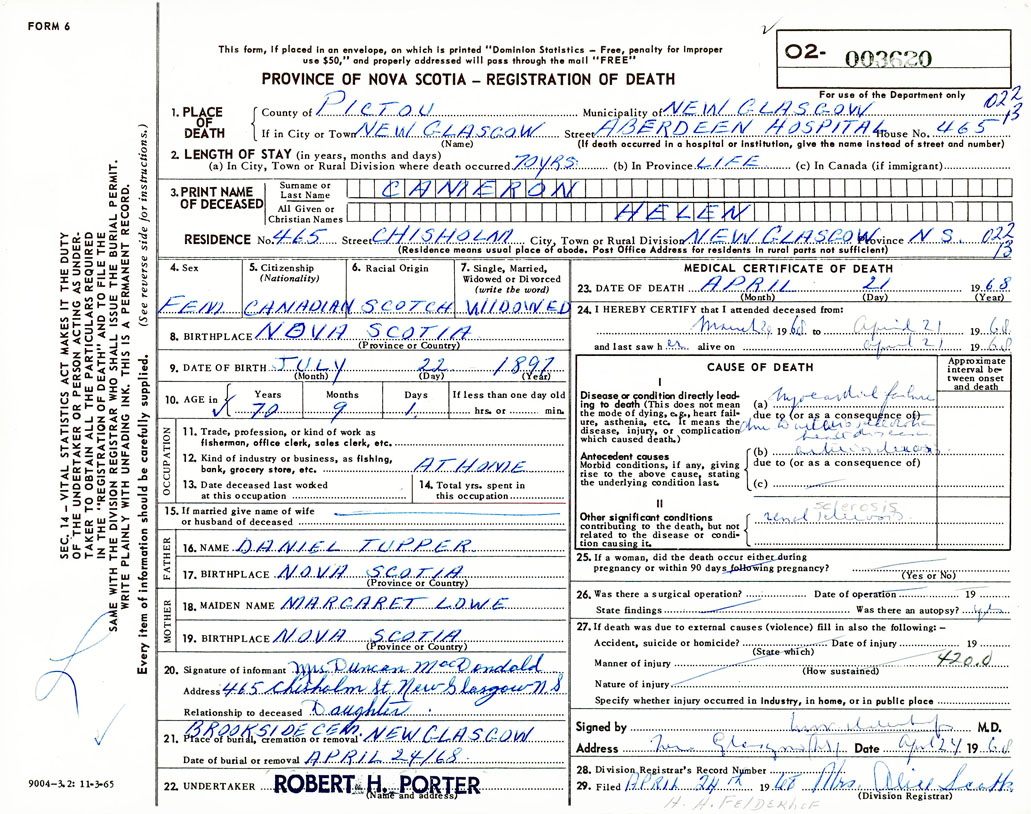 FORM 6
This form, if placed in an envelope, on which is printed "Dominion Statistics – Free, penalty for improper
use $50," and properly addressed will pass through the mail "FREE"
PROVINCE OF NOVA SCOTIA – REGISTRATION OF DEATH
O2- 003620
For use of the Department only
022
13
1. PLACE OF DEATH
County of PICTOU Municipality of NEW GLASGOW
If in City or Town NEW GLASGOW Street ABERDEEN HOSPITAL House No. 465
(Name) (If death occurred in a hospital or institution, give the name instead of street and number)
2. LENGTH OF STAY (in years, months and days)
(a) In City, Town or Rural Division where death occurred 70 YRS. (b) In Province LIFE (c) In Canada (if immigrant)
3. PRINT NAME OF DECEASED
Surname or Last Name CAMERON
All Given or Christian Names HELEN
RESIDENCE No. 465 Street CHISHOLM City, Town or Rural Division NEW GLASGOW Province N S. 022
13
(Residence means usual place of abode. Post Office Address for residents in rural parts not sufficient)
4. Sex FEM
5. Citizenship (Nationality) CANADIAN
6. Racial Origin SCOTCH
7. Single, Married, Widowed or Divorced (write the word) WIDOWED
8. BIRTHPLACE NOVA SCOTIA
(Province or Country)
9. DATE OF BIRTH JULY 22 1897
(Month) (Day) (Year)
10. AGE in Years Months Days If less than one day old
70 9 1 hrs. or min.
OCCUPATION
11. Trade, profession, or kind of work as
fishermon, office clerk, sales clerk, etc.
12. Kind of industry or business, as fishing,
bank, grocery store, etc. AT HOME
13. Date deceased last worked
at this occupation
14. Total yrs. spent in
this occupation
15. If married give name of wife
or husband of deceased
FATHER
16. NAME DANIEL TUPPER
17. BIRTHPLACE NOVA SCOTIA
(Province or Country)
MOTHER
18. MAIDEN NAME MARGARET LOWE
19. BIRTHPLACE NOVA SCOTIA
(Province or Country)
20. Signature of informant Mrs Duncan MacDonald
Address 465 Chisholm St. New Glasgow N S
Relationship to deceased Daughter
BROOKSIDE CEM. NEW GLASGOW
21. Place of burial, cremation or removal
Date of burial or removal APRIL 24/68
22. UNDERTAKER ROBERT H. PORTER
(Name and address)
MEDICAL CERTIFICATE OF DEATH
23. DATE OF DEATH APRIL 21 1968
(Month) (Day) (Year)
24. I HEREBY CERTIFY that I attended deceased from:
March 1968 to April 21 1968
and last saw her alive on April 21 1968
CAUSE OF DEATH
Approximate interval between onset and death
I
Disease or condition directly leading to death (This does not mean
the mode of dying, e.g., heart failure, asthenia, etc. It means the
disease, injury, or complication
which caused death.)
(a) myocardial failure
due to (or as a consequence of)
due to
heart disease
Antecedent causes
Morbid conditions, if any, giving
rise to the above cause, stating
the underlying condition last.
(b)
due to (or as a consequence of)
(c)
II
Other significant conditions
contributing to the death, but not
related to the disease or condition causing it.
sclerosis
renal sclerosis
25. If a woman, did the death occur either during
pregnancy or within 90 days following pregnancy?
(Yes or No)
26. Was there a surgical operation? Date of operation 19
State findings Was there an autopsy?
27. If death was due to external causes (violence) fill in also the following: –
Accident, suicide or homicide? Date of injury 19
(State which)
Manner of injury 420.0
(How sustained)
Nature of injury
Specify whether injury occurred in industry, in home, or in public place
Signed by M.D.
Address New Glasgow Date Apr 24 1968
28. Division Registrar's Record Number
29. Filed APRIL 24TH 1968 Mrs. Alice Scott
(Division Registrar)
SEC. 14 – VITAL STATISTICS ACT MAKES IT THE DUTY
OF THE UNDERTAKER OR PERSON ACTING AS UNDERTAKER TO OBTAIN ALL THE PARTICULARS REQUIRED
IN THE "REGISTRATION OF DEATH" AND TO FILE THE
SAME WITH THE DIVISION REGISTRAR WHO SHALL ISSUE THE BURIAL PERMIT.
WRITE PLAINLY WITH UNFADING INK. THIS IS A PERMANENT RECORD.
Every item of information should be carefully supplied. (See reverse side for instructions.)
9004-3.2: 11-3-65